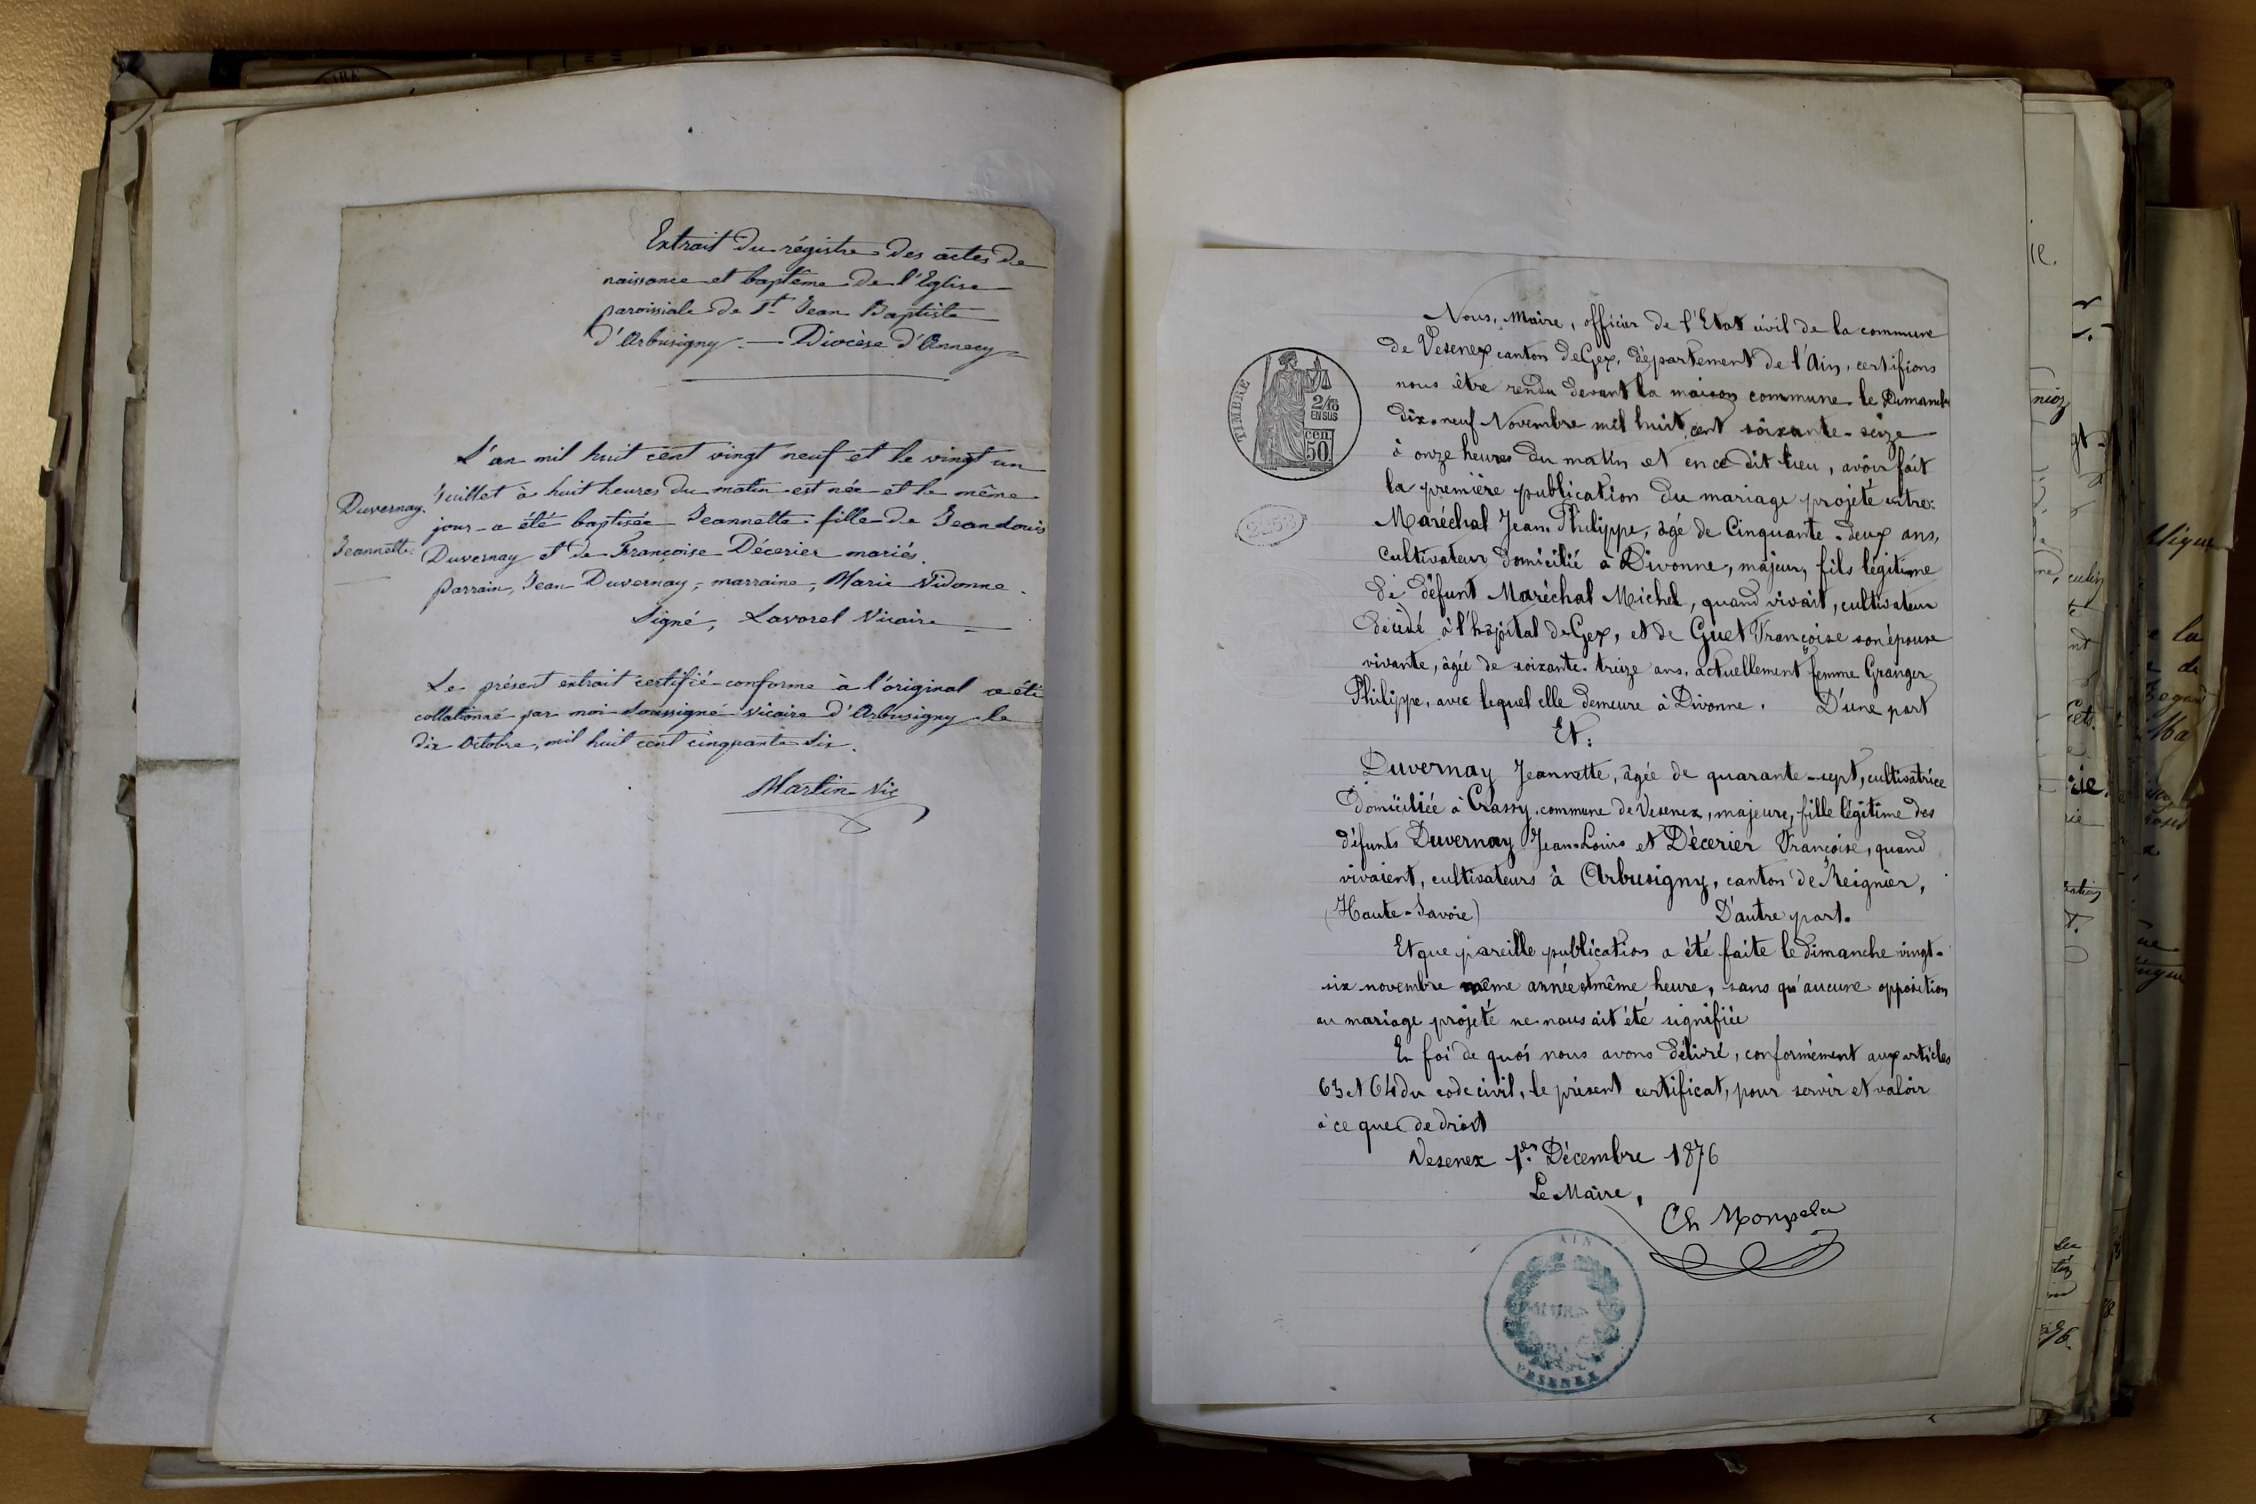 Extrait du régistre des actes de
naissance et baptême de l'Eglise
paroissiale de St Jean Baptiste
d'Arbusigny. — Diocèse d'Annecy
L'an mil huit cent vingt neuf et le vingt un
Juillet à huit heures du matin est née et le même
jour a été baptisée Jeannette fille de Jean Louis
Duvernay et de Françoise Décerier mariés.
parrain, Jean Duvernay, marraine, Marie Vidonne.
Signé, Lavorel Vicaire
Duvernay.
Jeannette.
Le présent extrait certifié conforme à l'original a été
collationné par moi soussigné vicaire d'Arbusigny le
dix Octobre, mil huit cent cinquante six.
Martin Vic
TIMBRE
2/10
EN SUS
cen.
50
Nous, Maire, officier de l'Etat civil de la commune
de Vesenex canton de Gex, département de l'Ain, certifions
nous être rendu devant la maison commune le Dimanche
dix-neuf Novembre mil huit cent soixante-seize
à onze heures du matin et en ce dit lieu, avoir fait
la première publication du mariage projeté entre:
Maréchal Jean Philippe, âgé de Cinquante-deux ans,
cultivateur domicilié à Divonne, majeur, fils légitime
de défunt Maréchal Michel, quand vivait, cultivateur
décédé à l'hôpital de Gex, et de Guet Françoise son épouse
vivante, âgée de soixante-treize ans, actuellement femme Granger
Philippe, avec lequel elle demeure à Divonne. D'une part
Et:
Duvernay Jeannette, âgée de quarante-sept, cultivatrice
domiciliée à Crassy, commune de Vesenex, majeure, fille légitime des
défunts Duvernay Jean-Louis et Décerier Françoise, quand
vivaient, cultivateurs à Arbusigny, canton de Reignier,
(Haute-Savoie) D'autre part.
Et que pareille publication a été faite le dimanche vingt-
six novembre même année et même heure, sans qu'aucune opposition
au mariage projeté ne nous ait été signifiée
En foi de quoi nous avons délivré, conformément aux articles
63 et 64 du code civil, le présent certificat, pour servir et valoir
à ce que de droit
Vesenex 1er Décembre 1876
Le Maire,
AIN
VESENEX